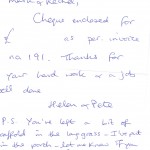 Cheque enclosed for
£ as per invoice
no 191. Thanks for
your hard work & a job
well done
Helen & Pete
P.S. You've left a bit of
scaffold in the long grass - I've put
in the porch - let me know if you